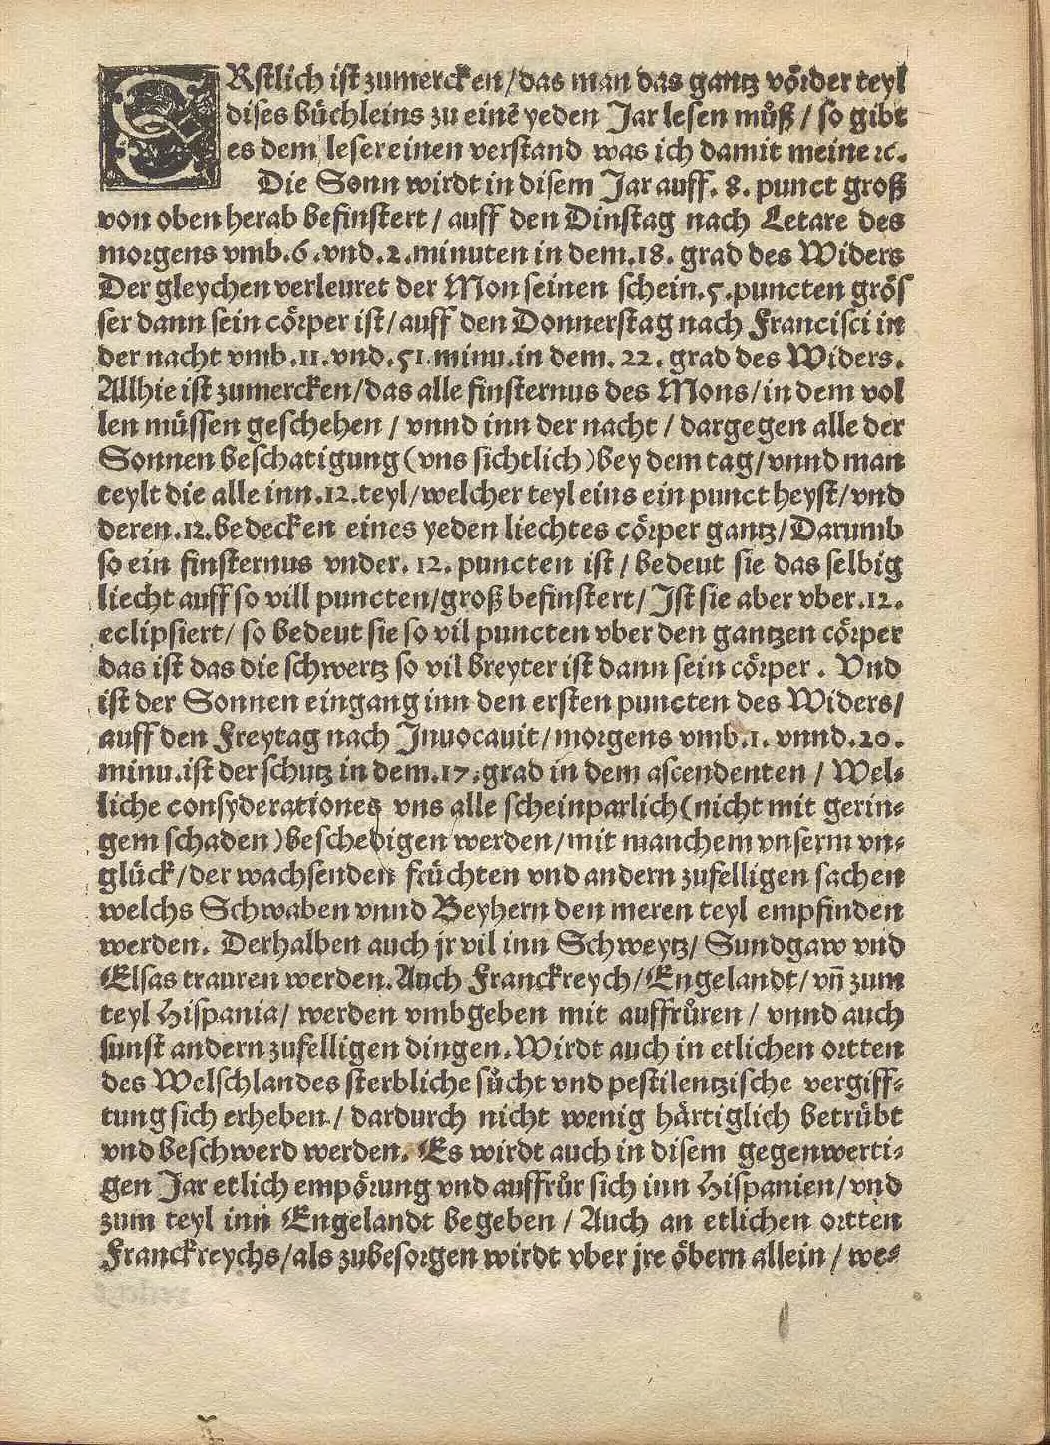 ERstlich ist zumercken / das man das gantz võrder teyl
dises büchleins zu einẽ yeden Jar lesen můß / so gibt
es dem leser einen verstand was ich damit meine ꝛc.
Die Sonn wirdt in disem Jar auff. 8. punct groß
von oben herab befinstert / auff den Dinstag nach Letare des
morgens vmb .6. vnd .2. minuten in dem .18. grad des Widers
Der gleychen verleuret der Mon seinen schein .5. puncten grös
ser dann sein cörper ist / auff den Donnerstag nach Francisci in
der nacht vmb .11. vnd .51. minu. in dem . 22. grad des Widers.
Allhie ist zumercken / das alle finsternus des Mons / in dem vol
len müssen geschehen / vnnd inn der nacht / dargegen alle der
Sonnen beschatigung (vns sichtlich) bey dem tag / vnnd man
teylt die alle inn .12. teyl / welcher teyl eins ein punct heyst / vnd
deren .12. bedecken eines yeden liechtes cörper gantz / Darumb
so ein finsternus vnder . 12. puncten ist / bedeut sie das selbig
liecht auff so vill puncten / groß befinstert / Ist sie aber vber .12.
eclipsiert / so bedeut sie so vil puncten vber den gantzen cörper
das ist das die schwertz so vil breyter ist dann sein cörper . Vnd
ist der Sonnen eingang inn den ersten puncten des Widers /
auff den Freytag nach Inuocauit / morgens vmb .1. vnnd .20.
minu. ist der schutz in dem .17. grad in dem ascendenten / Wel⸗
liche consyderationes vns alle scheinparlich (nicht mit gerin⸗
gem schaden) beschedigen werden / mit manchem vnserm vn⸗
glück / der wachsenden früchten vnd andern zufelligen sachen
welchs Schwaben vnnd Beyhern den meren teyl empfinden
werden. Derhalben auch jr vil inn Schweytz / Sundgaw vnd
Elsas trauren werden. Auch Franckreych / Engelandt / vñ zum
teyl Hispania / werden vmbgeben mit auffrůren / vnnd auch
sunst andern zufelligen dingen. Wirdt auch in etlichen ortten
des Welschlandes sterbliche sücht vnd pestilentzische vergiff⸗
tung sich erheben / dardurch nicht wenig härtiglich betrübt
vnd beschwerd werden. Es wirdt auch in disem gegenwerti⸗
gen Jar etlich empörung vnd auffrůr sich inn Hispanien / vnd
zum teyl inn Engelandt begeben / Auch an etlichen ortten
Franckreychs / als zubesorgen wirdt vber jre öbern allein / we⸗